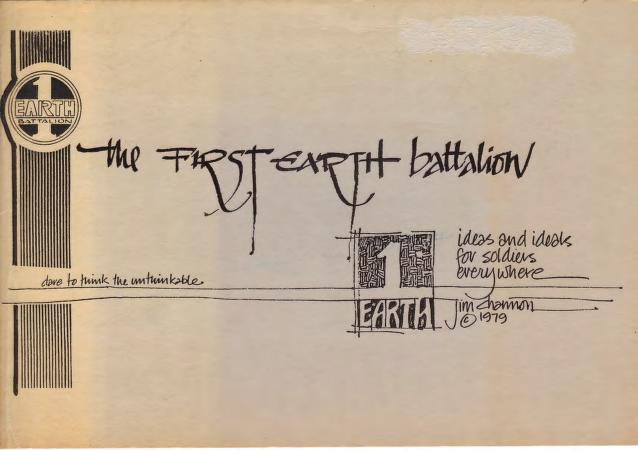 1
EARTH
BATTALION
the FIRST EARTH battalion
ideas and ideals
for soldiers
everywhere
dare to think the unthinkable
1
EARTH
jim channon
© 1979